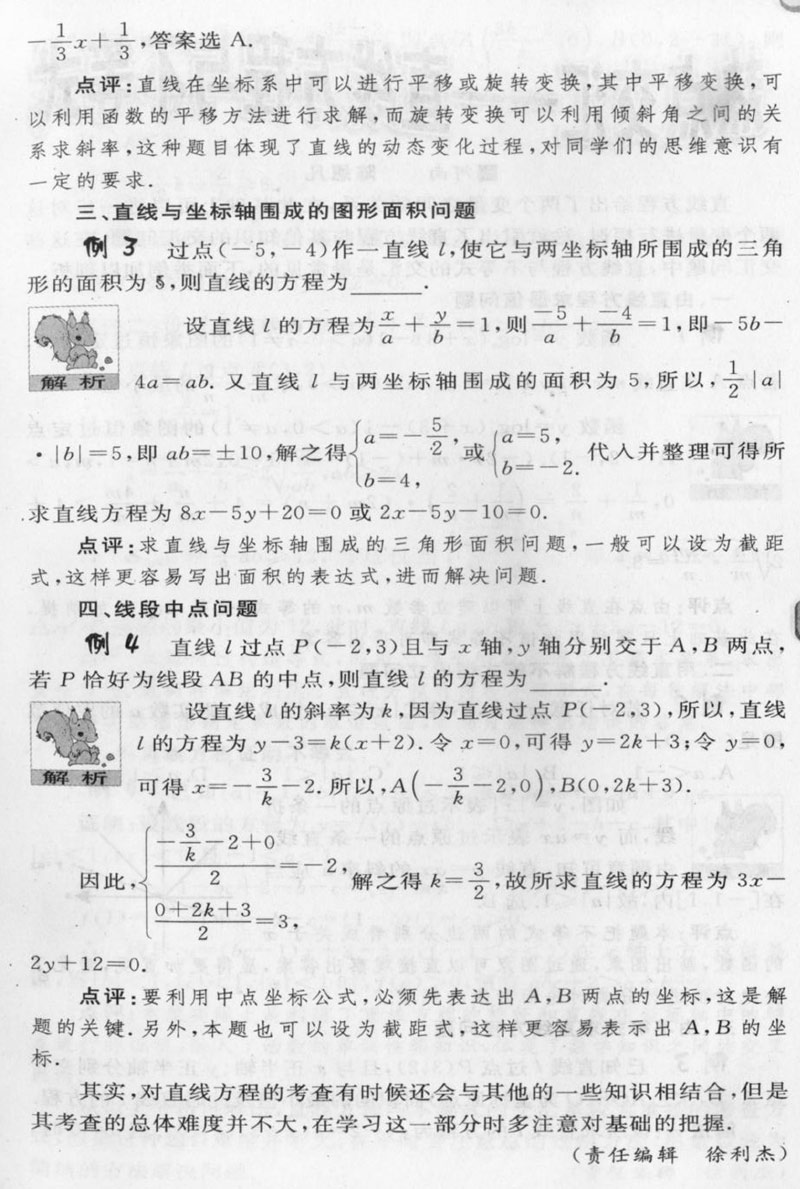 $-\frac{1}{3}x+\frac{1}{3}$,答案选 A.
点评:直线在坐标系中可以进行平移或旋转变换,其中平移变换,可
以利用函数的平移方法进行求解,而旋转变换可以利用倾斜角之间的关
系求斜率,这种题目体现了直线的动态变化过程,对同学们的思维意识有
一定的要求.
三、直线与坐标轴围成的图形面积问题
例 3 过点(-5,-4)作一直线 l,使它与两坐标轴所围成的三角
形的面积为 5,则直线的方程为______.
设直线 l 的方程为$\frac{x}{a}+\frac{y}{b}=1$,则$\frac{-5}{a}+\frac{-4}{b}=1$,即-5b-
解 析 4a=ab. 又直线 l 与两坐标轴围成的面积为 5,所以,$\frac{1}{2}|a|$
·|b|=5,即 ab=±10,解之得$\begin{cases}a=-\frac{5}{2},\\b=4,\end{cases}$或$\begin{cases}a=5,\\b=-2.\end{cases}$ 代人并整理可得所
求直线方程为 8x-5y+20=0 或 2x-5y-10=0.
点评:求直线与坐标轴围成的三角形面积问题,一般可以设为截距
式,这样更容易写出面积的表达式,进而解决问题.
四、线段中点问题
例 4 直线 l 过点 P(-2,3)且与 x 轴,y 轴分别交于 A,B 两点,
若 P 恰好为线段 AB 的中点,则直线 l 的方程为______.
设直线 l 的斜率为 k,因为直线过点 P(-2,3),所以,直线
l 的方程为 y-3=k(x+2). 令 x=0,可得 y=2k+3;令 y=0,
解 析 可得 x=$-\frac{3}{k}-2$. 所以,$A\left(-\frac{3}{k}-2,0\right)$,B(0,2k+3).
因此,$\begin{cases}\frac{-\frac{3}{k}-2+0}{2}=-2,\\\frac{0+2k+3}{2}=3,\end{cases}$解之得 k=$\frac{3}{2}$,故所求直线的方程为 3x-
2y+12=0.
点评:要利用中点坐标公式,必须先表达出 A,B 两点的坐标,这是解
题的关键. 另外,本题也可以设为截距式,这样更容易表示出 A,B 的坐
标.
其实,对直线方程的考查有时候还会与其他的一些知识相结合,但是
其考查的总体难度并不大,在学习这一部分时多注意对基础的把握.
(责任编辑 徐利杰)